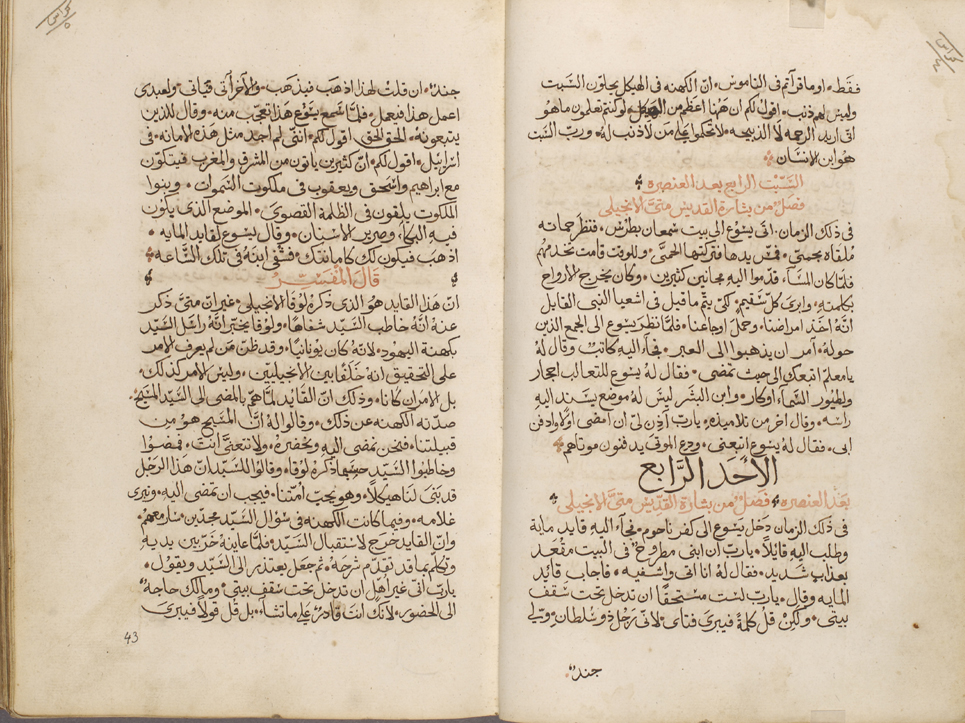 فقط. اوما قرأتم فى الناموس. انّ الكهنه فى الهيكل يحلّون السَّبت
وليس لهم ذنب. اقول لكم ان هٰهنا اعظم من الهيكل. لو كنتم تعلمون ما هو
انى اريد الرحمه لا الذبيحه. لا تحكموا على من لا ذنب له. وربّ السَّبت
هو ابن الانسَان
السَّبْت الرابع بعد العنصره
فصَلٌ من بشارة القديس متىَّ الانجيلى
فى ذلك الزمان. اتى يسُوع الى بيت سمعان بطرسْ. فنظر حماته
مُلقاه محمى. فمسّ يدها فتركتها الحمىّ. وللوقت قامت تخدمهم
فلمّا كان المسَآء قدّموا اليهِ مجانين كثيرين. وكان يخرج الارواح
بكلمته. وابرى كلّ سَقيم. لكى يتمّ ما قيل فى اشعيا النبى القايل
انَّهُ اخذ امراضنا. وحمل اوجاعنا. فلمَّا نظر يَسوع الى الجمع الذين
حوله. آمر ان يذهبوا الى العبر. فجآء اليه كاتبٌ وقال لهُ
يا معلم اتبعك الى حيث تمضى. فقال لهُ يسُوع للثعالب اجحار
ولطيور السَّمآء اوكار. وابن البشر ليسَ لهُ موضع يسند اليهِ
راسَه. وقال اخر من تلاميذه. ياربّ آذن لى ان امضى اوّلاً وادفن
ابى. فقال لهُ يسُوع اتبعنى. ودع الموتى يدفنون موتاهم
الأحد الرَّابع
بعد العنصره فصَلٌ من بشارة القدّيس متىَّ الانجيلى
فى ذلك الزمان دَخل يسَوع الى كفر ناحوم. فجآء اليهِ قايد مايه
وطلب اليهِ قائلاً. ياربّ انّ ابنى مطروحٌ فى البيت مقعَد
بعذابٍ شَديد. فقال لهُ انا اتى واشفيه. فاجابَ قائد
المايه وقال. ياربّ لسْت مسْتحقًا ان تدخل تحت سَقف
بيتى. ولكنْ قل كلمةً فيبرى فتاى. لانّى رَجُل ذو سُلطان. ولى
جندٌ
جندٌ. ان قلتُ لهذا اذهَب فيذهَب. وللآخر أتى فياتى. ولعبدى
اعمل هذا فيعمل. فلمَّا سَمع يسَوع هذا تعجّب منه. وقال للذين
يتبعونهُ. الحق الحق. اقول لكم. اننّى لم اجد مثل هذه الامانه فى
اسرآئيل. اقول لكم. انّ كثيرين ياتون من المشرق والمغرب فيتكون
مع ابراهيم واسحق ويعقوب فى ملكوت السَّموات. وبنوا
الملكوت يلقون فى الظلمة القصوى. الموضع الذى يكون
فيه البكآء وصرير الاسْنان. وقال يسَوع لقايد المايه
اذهَب فيكون لك كامانتك. فشفى ابنهُ فى تلك السَّاعه
قالَ المفسّر
انّ هَذا القايد هُو الذى ذكرهُ لوقا الانجيلى. غير انّ متىَّ ذكر
عنهُ انَّهُ خاطب السَّيّد شفاهًا. ولوقا يخبّر انَّهُ راسَل السَّيّد
بكهنة اليهود. لانَّه كان يونانيًا. وقد ظنّ من لم يعرف الامر
على التحقيق انَّهُ خَلفًا بين الانجيليّين. وليس الامر كذلك.
بل الامران كانا. وذلك انّ القائد لمَّا همّ بالمضى الى السَّيّد المسَيح.
صدّته الكهنه عن ذلك. وقالوا لهُ انّ المسَيح هُو من
قبيلتنا. فنحن نمضى اليهِ ونحضرهُ. ولا تتعنَّى انت. فمضَوا
وخاطبوا السَّيّد حسبما ذكرهُ لوقا. وقالوا للسَّيّد انّ هذا الرَجُل
قد بَنى لنا هيكلاً. وهو يحبّ امّتنا. فيجب ان تمضى اليهِ. وتبرى
غلامه. وفيما كانت الكهنه فى سُؤال السَّيّد مجدّين. سَار معهم.
وانّ القايد خَرج لاستقبال السَّيّد. فلمَّا عاينهُ خرّ بين يديهِ
وتكلّم بما قد تقدّم شرحهُ. ثم جعل يعتذر الى السَّيّد ويقول.
ياربّ انّى غير اهْل ان تدخل تحت سَقف بيتى. وما لك حاجه
الى الحضور. لانَّك انتَ قادرٌ على ما تشاء. بل قل قولاً فيبرى
43